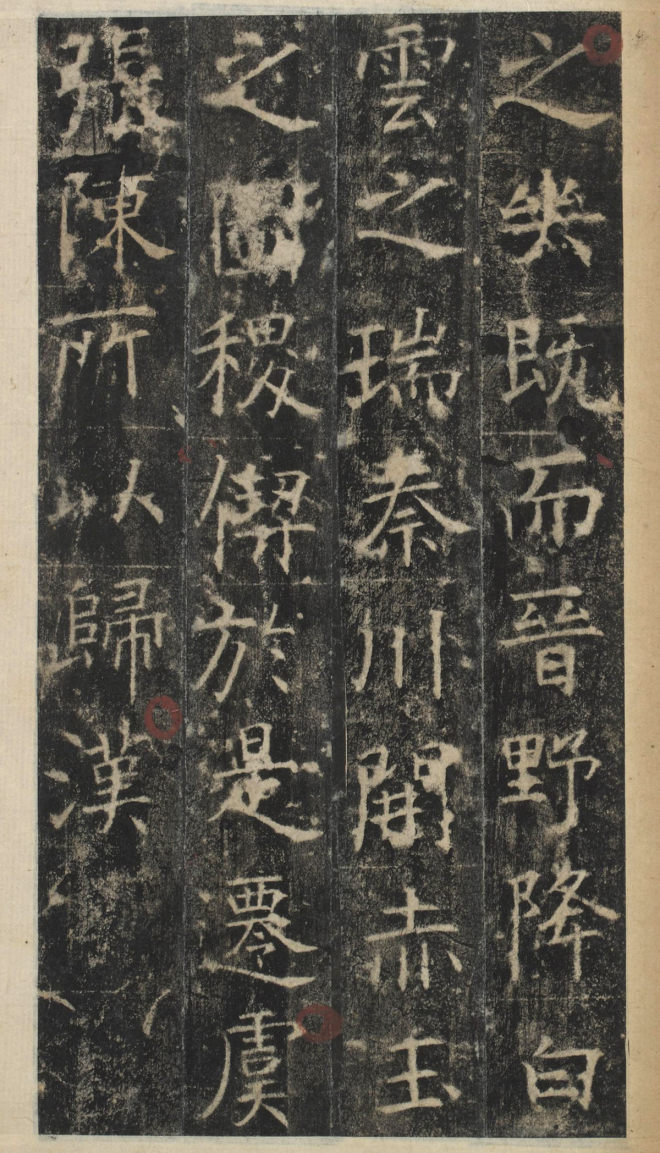 之既而晉野降白
雲之瑞秦川開赤玉
之圖稷偰於是遷虞
張陳所以歸漢